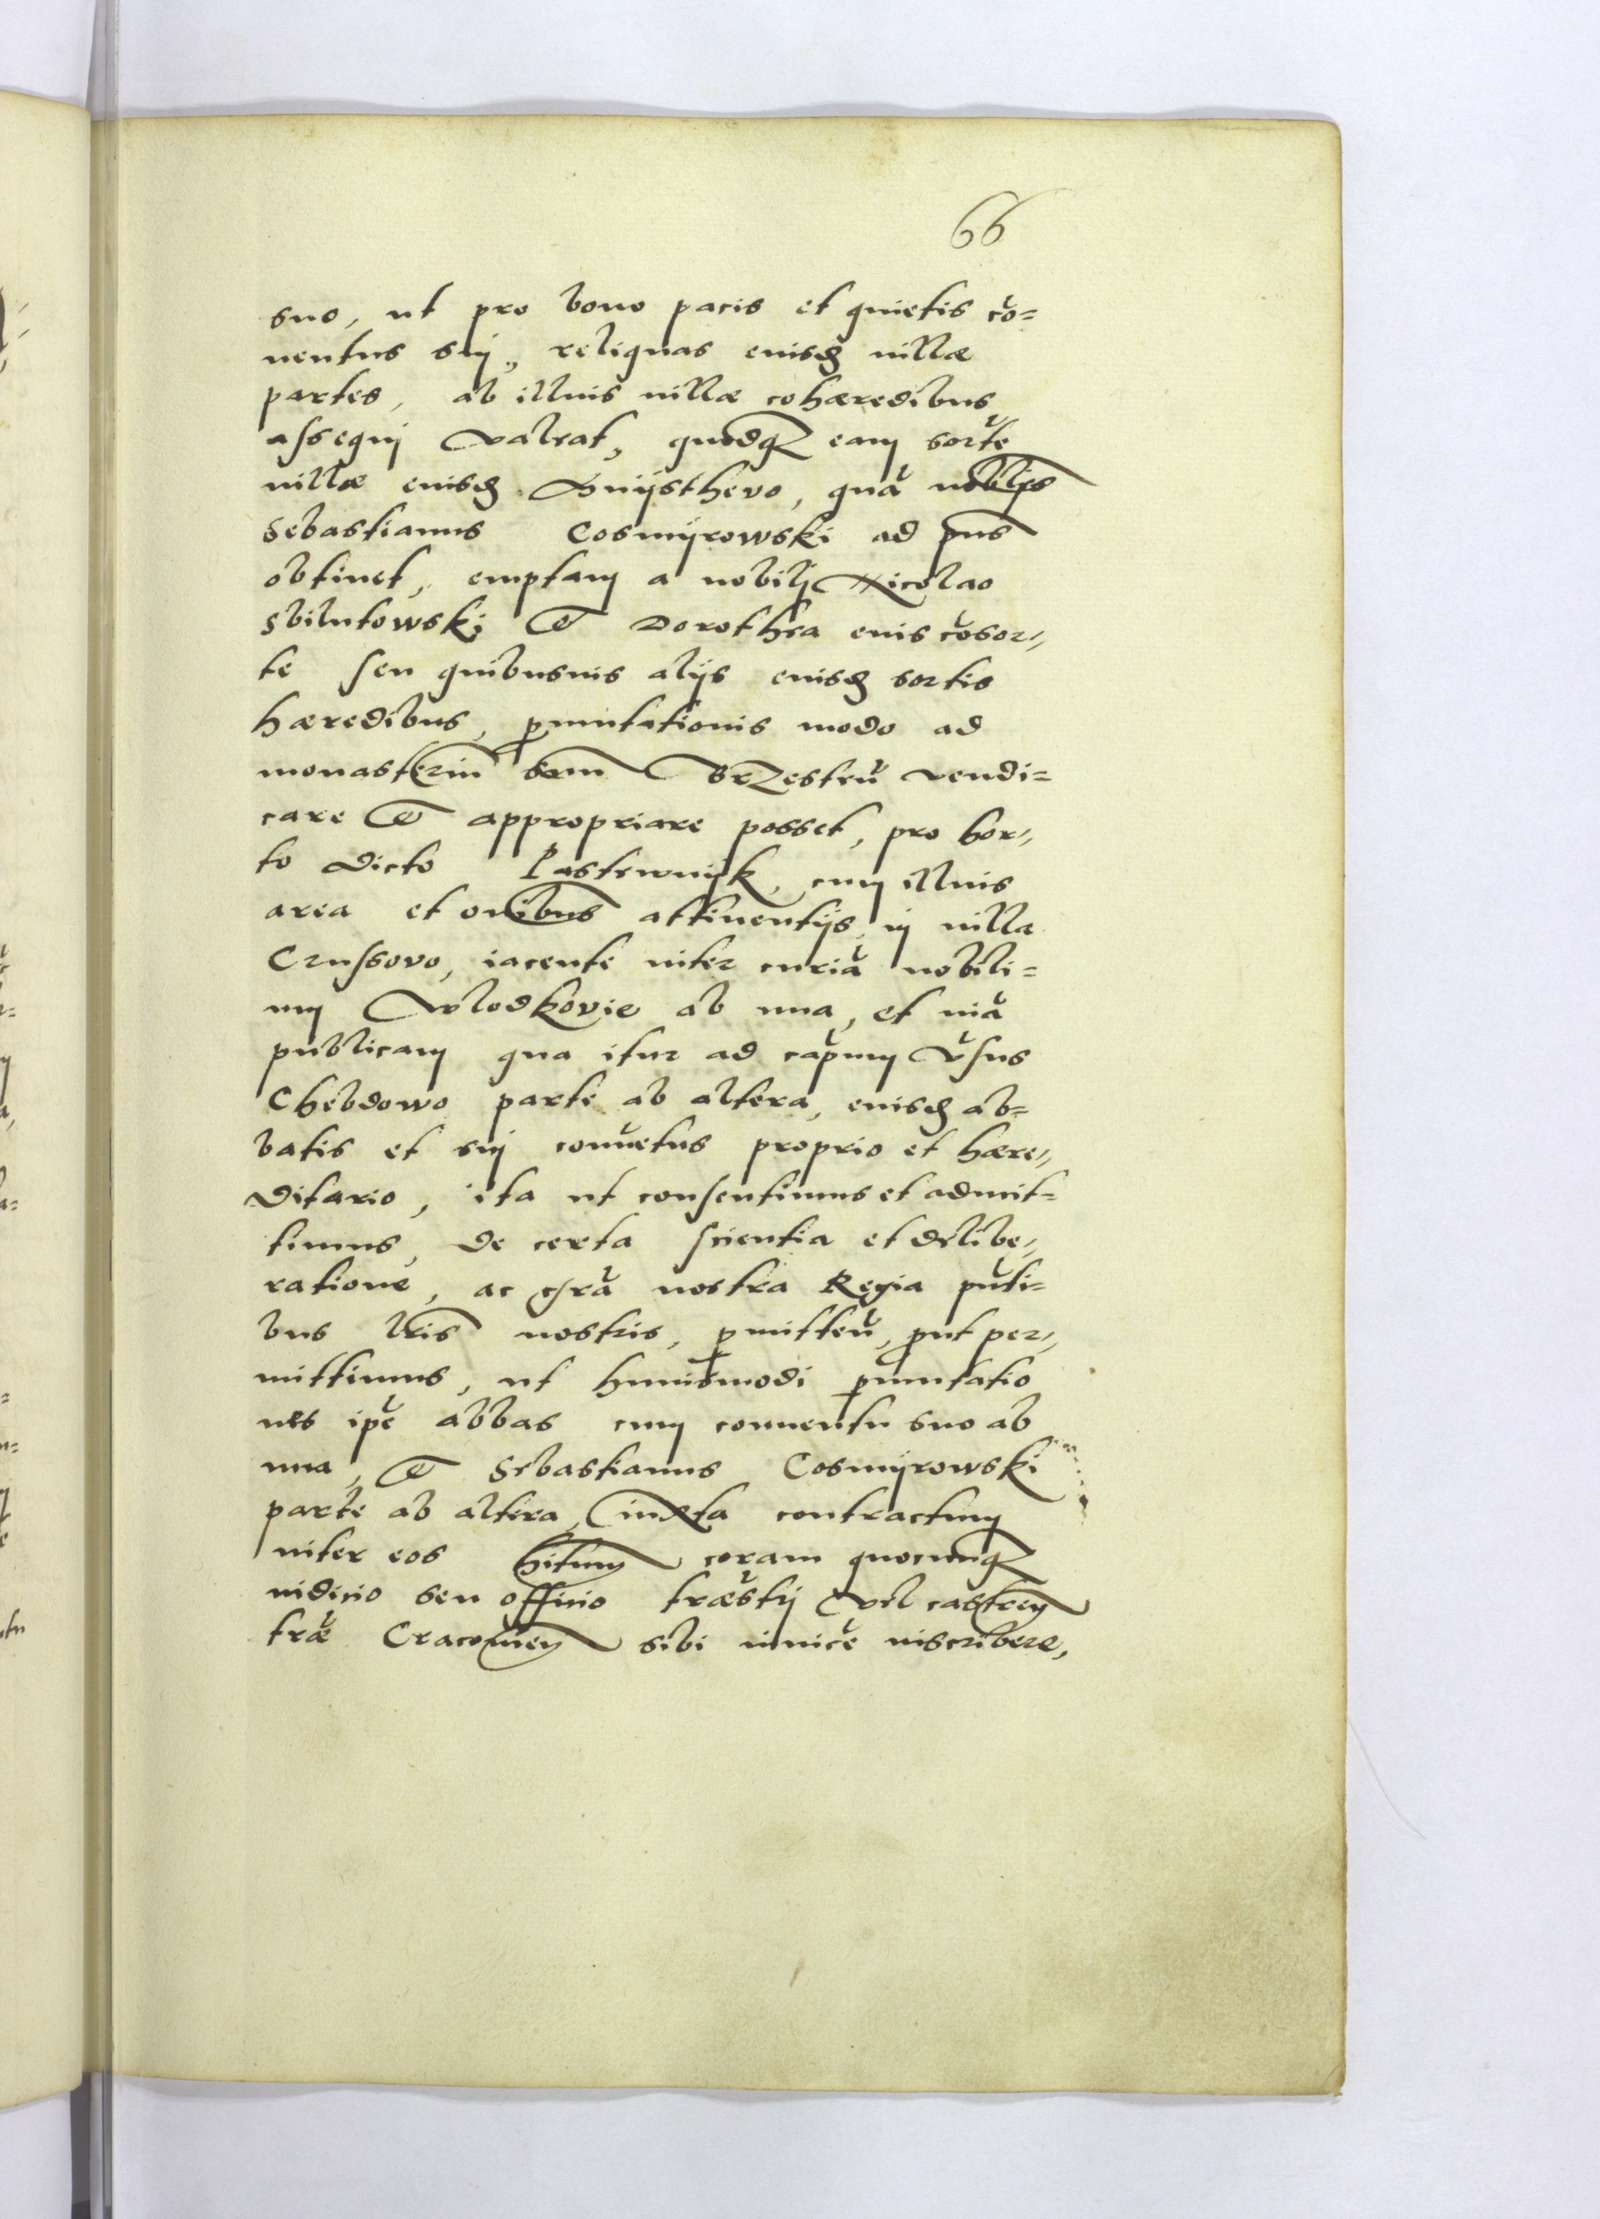 66
suo, ut pro bono pacis et quietis cō=
uentus sui, reliquas eiusd. uillæ
partes, ab illius uillæ cohæredibus
assequi valeat, quodq. eam sortē
uillæ eiusd. Gniÿsthevo, quā nobilis
Sebastianus Cosmÿrowski ad pn̄s
obtinet, emptam a nobili Nicolao
Sbilutowski et Dorothea eius cōsor=
te seu quibusuis alijs eiusd. sortis
hæredibus, p̱mutationis modo ad
monasteriū suum Brzesceñ vendi=
care et appropriare posset, pro hor=
to dicto Pasterwnÿk, cum illius
area et oībus attinentijs, in uilla
Crussovo, iacente inter curiā nobili=
um Wlodkovie ab una, et uiā
publicam qua itur ad cāpum v̄sus
Chebdowo parte ab altera, eiusd. ab=
batis et sui conuētus proprio et hære=
ditario, ita ut consentimus et admit=
timus, de certa scientia et delibe=
ratione, ac grā nostra Regia pn̄ti=
bus lr̄is nostris, p̱mitteñ, put per=
mittimus, ut huiusmodi p̱mutatio
nes ip̄e abbas cum conuentu suo ab
una, et Sebastianus Cosmÿrowski
parte ab altera, iuxta contractum
inter eos hitum coram quocunq.
iudicio seu officio trœ̄stri vel castren
trǣ Cracouien sibi inuicē inscribere,